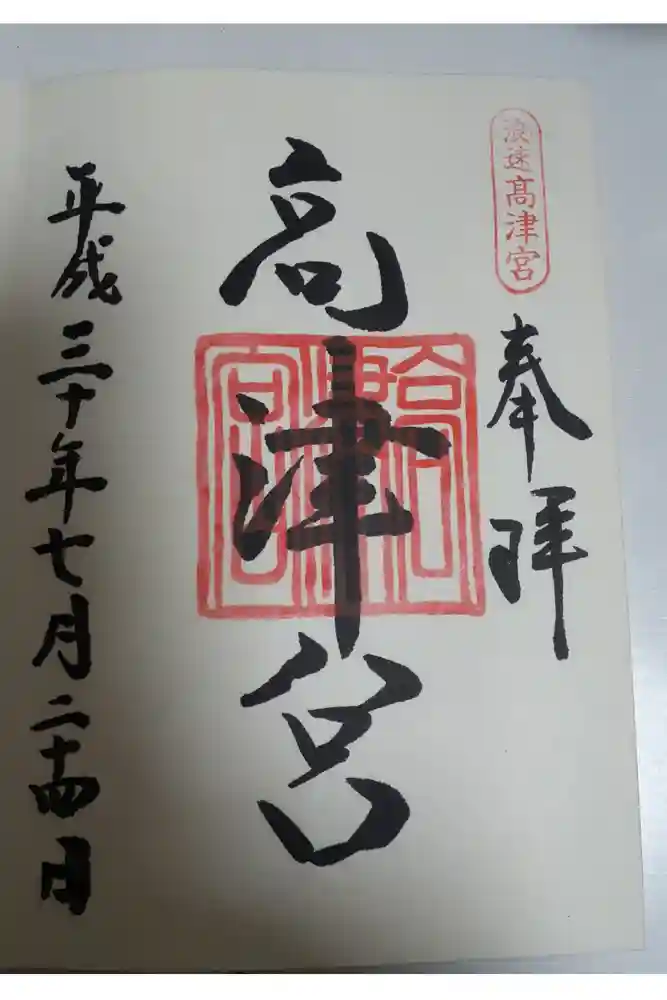 浪速高津宮
奉拝
高津宮
高津宮
平成三十年七月二十四日